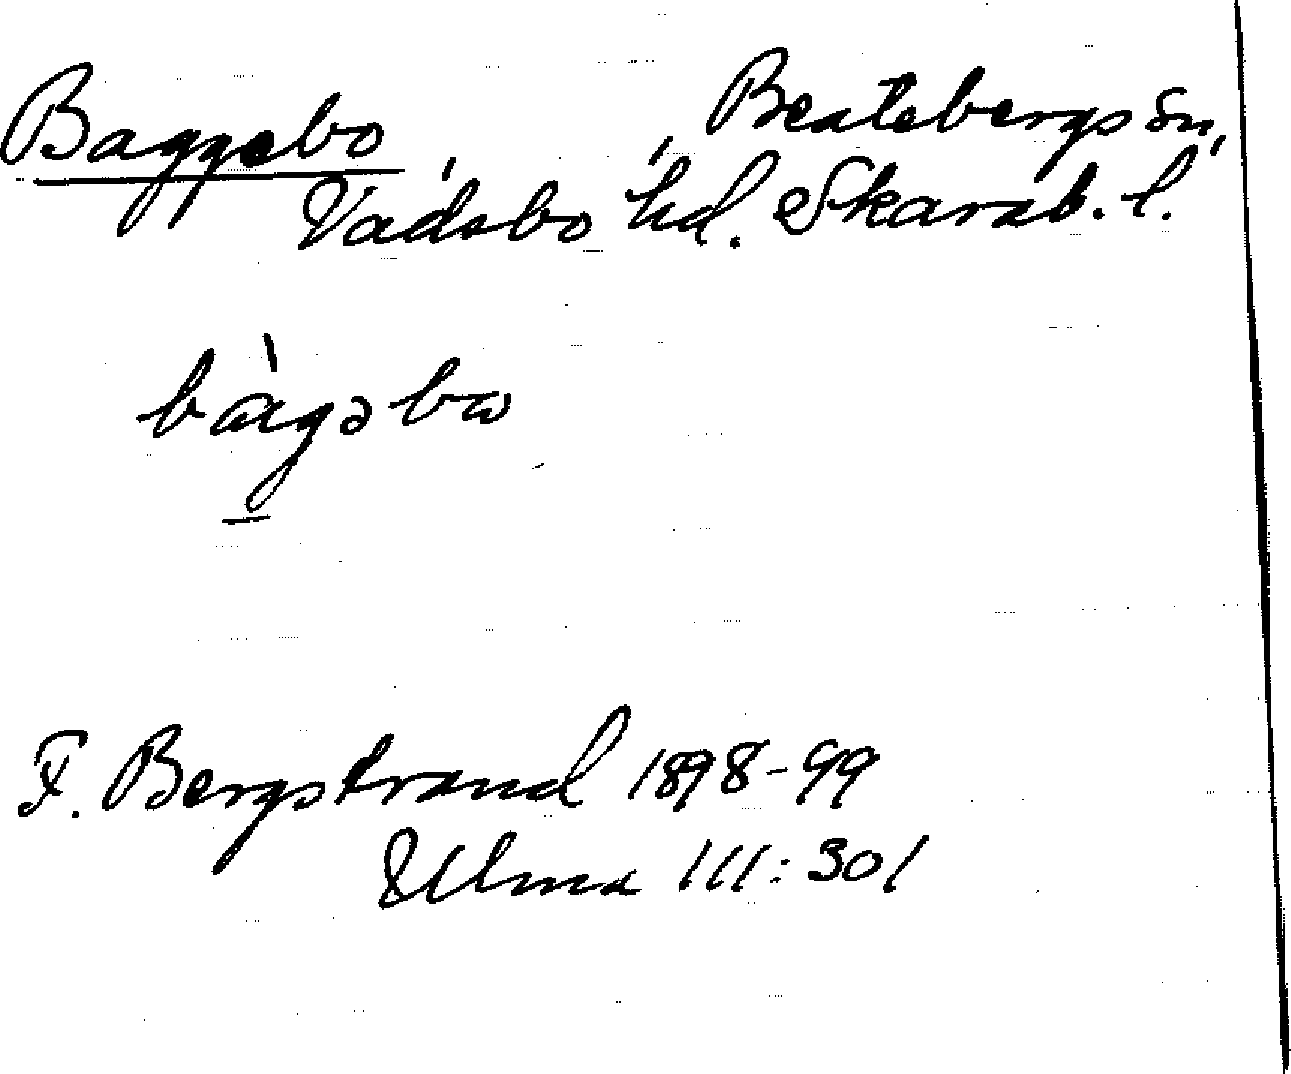 Baggebo, Beatebergs sn,
Vadsbo hd. Skarab. l.
bàgəbω
F. Bergstrand 1898-99
Ulma 111:301